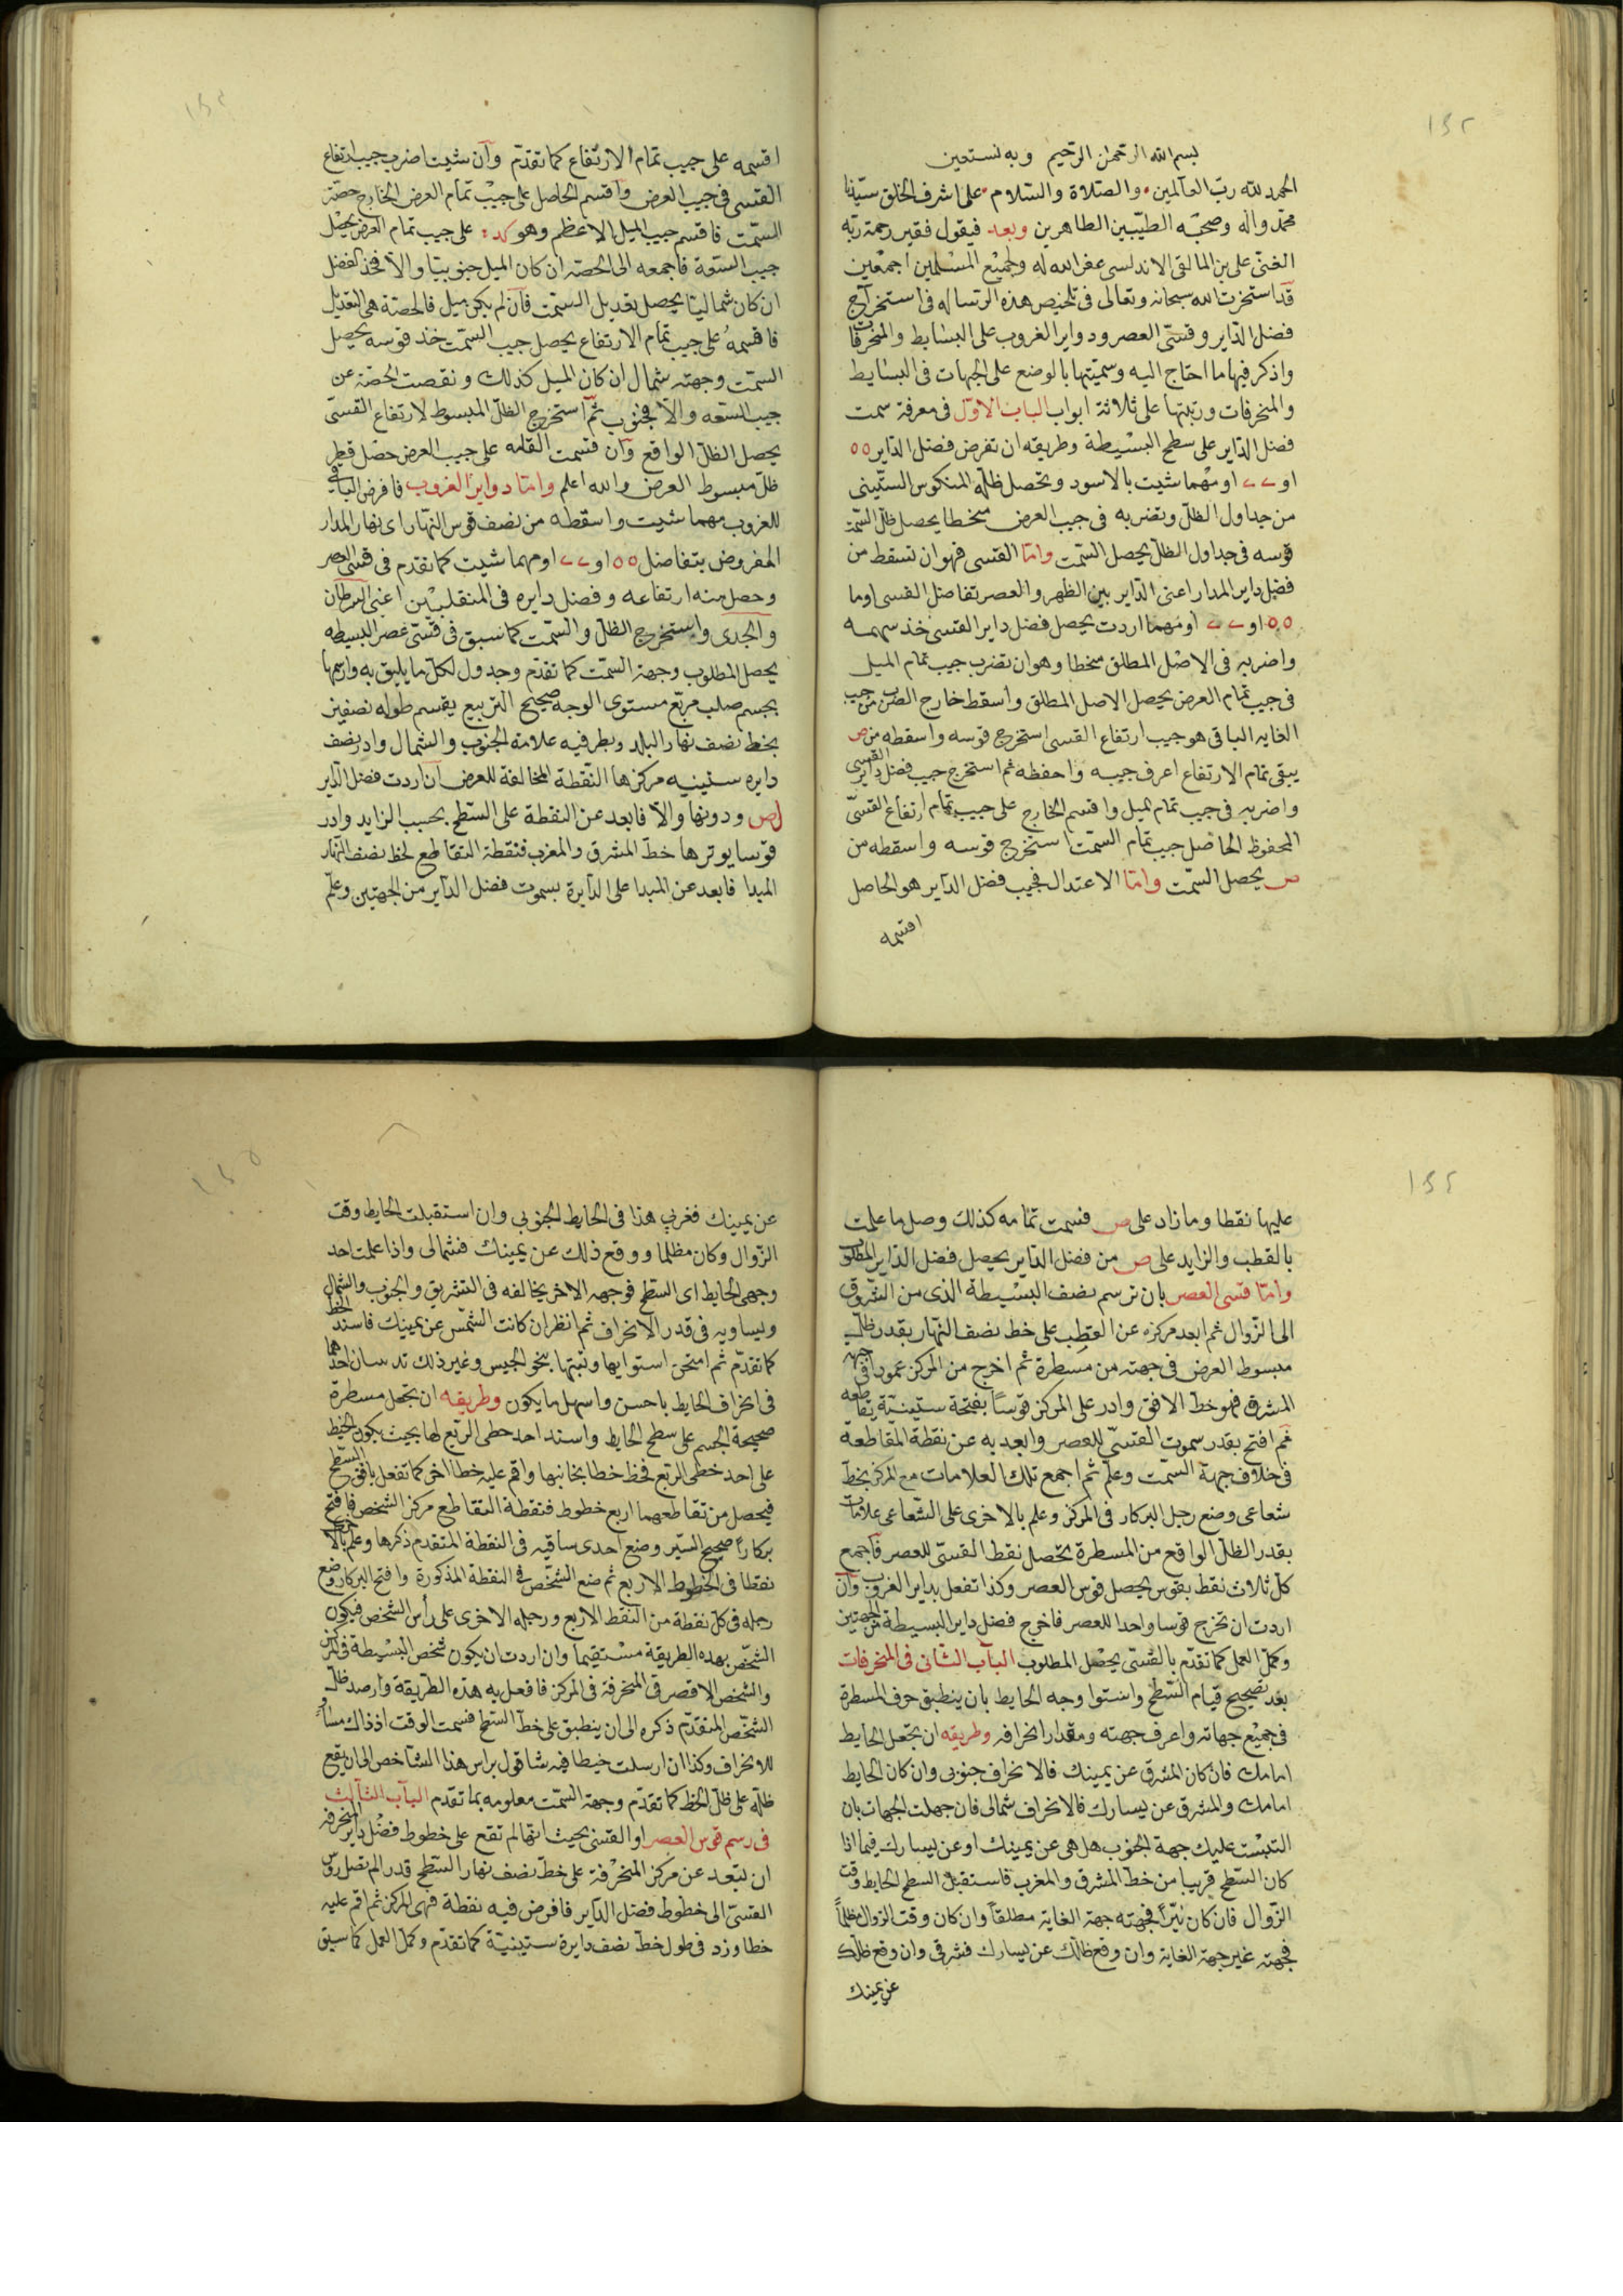 ١٤٣
بسم الله الرحمن الرحيم وبه نستعين
الحمد لله رب العالمين والصلاة والسلام على اشرف الخلق سيدنا
محمد واله وصحبه الطيبين الطاهرين وبعد فيقول فقير رحمة ربه
الغنى على بن المالقى الاندلسى عفر الله له ولجميع المسلمين اجمعين
قد استخرت الله سبحانه وتعالى فى تلخيص هذه الرساله فى استخراج
فضل الداير وقسى العصر ودواير الغروب على البسايط والمنحرفات
واذكر فيها ما احتاج اليه وسميتها بالوضع على الجهات فى البسايط
والمنحرفات ورتبتها على ثلاثة ابواب الباب الاول فى معرفة سمت
فضل الداير على سطح البسيطة وطريقه ان تفرض فضل الداير ٥٥
او ٢٢ او مهما شيت بالاسود وتحصل ظله المنكوس الستينى
من جداول الظل وتضربه فى جيب العرض منحطا يحصل ظل السمت
قوسه فى جداول الظل يحصل السمت واما القسى فهو ان تسقط من
فضل داير المدار اعنى الداير بين الظهر والعصر تفاضل القسى اوما
٥٥ او ٢٢ او مهما اردت يحصل فضل داير القسى خذ سهمه
واضربه فى الاصل المطلق منحطا وهو ان تضرب جيب تمام الميل
فى جيب تمام العرض يحصل الاصل المطلق واسقط خارج الضرب من جيب
الغايه الباقى هو جيب ارتفاع القسى استخرج قوسه واسقطه من ص
يبقى تمام الارتفاع اعرف جيبه واحفظه ثم استخرج جيب فضل داير القسى
واضربه فى جيب تمام الميل واقسم الخارج على جيب تمام ارتفاع القسى
المحفوظ الحاصل جيب تمام السمت استخرج قوسه واسقطه من
ص يحصل السمت واما الاعتدال فجيب فضل الداير هو الحاصل
اقسمه
اقسمه على جيب تمام الارتفاع كما تقدم وان شيت اضرب جيب ارتفاع
القسى فى جيب العرض واقسم الحاصل على جيب تمام العرض الخارج حصة
السمت فاقسم جيب الميل الاعظم وهو كد على جيب تمام العرض يحصل
جيب السعة فاجمعه الى الحصه ان كان الميل جنوبيا والا فخذ الفضل
ان كان شماليا يحصل تعديل السمت فان لم يكن ميل فالحصة هى التعديل
فاقسمه على جيب تمام الارتفاع يحصل جيب السمت خذ قوسه يحصل
السمت وجهته شمال ان كان الميل كذلك ونقصت الحصة عن
جيب السعه والا فجنوب ثم استخرج الظل المبسوط لارتفاع القسى
يحصل الظل الواقع وان قسمت القامه على جيب العرض حصل قطر
ظل مبسوط العرض والله اعلم واما دواير الغروب فافرض الباقى
للغروب مهما شيت واسقطه من نصف قوس النهار اى نهار المدار
المفروض بتفاضل ٥٥ او ٢٢ او مهما شيت كما تقدم فى قسى العصر
وحصل منه ارتفاعه وفضل دايره فى المنقلبين اعنى السرطان
والجدى واستخرج الظل والسمت كما سبق فى قسى عصر البسيطه
يحصل المطلوب وجهة السمت كما تقدم وجدول لكل ما يليق به وارسمها
بجسم صلب مربع مستوى الوجه صحيح التربيع يقسم طوله نصفين
بخط نصف نهار البلد وبطرفيه علامة الجنوب والشمال وادر نصف
دايره ستينيه مركزها النقطة المخالفة للعرض ان اردت فضل الداير
لص ودونها والا فابعد عن النقطة على السطح بحسب الزايد وادر
قوسا يوترها خط المشرق والمغرب فنقطة التقاطع لخط نصف النهار
المبدا فابعد عن المبدا على الدايرة بسموت فضل الداير من الجهتين وعلم
عليها نقطا وما زاد على ص فسمت تمامه كذلك وصل ما علمت
بالقطب والزايد على ص من فضل الداير يحصل فضل الداير المطلوب
واما قسى العصر بان ترسم نصف البسيطة الذى من الشروق
الى الزوال ثم ابعد مركزه عن القطب على خط نصف النهار بقدر ظل
مبسوط العرض فى جهته من مسطرة ثم اخرج من المركز عمودا فى جهة
المشرق فهو خط الافق وادر على المركز قوسا بفتحة ستينية يقاطعه
ثم افتح بقدر سموت القسى للعصر وابعد به عن نقطة المقاطعه
فى خلاف جهة السمت وعلم ثم اجمع تلك العلامات مع المركز بخط
شعاعى وضع رجل البركار فى المركز وعلم بالاخرى على الشعاعى علامات
بقدر الظل الواقع من المسطرة تحصل نقط القسى للعصر فاجمع
كل ثلاث نقط بقوس يحصل قوس العصر وكذا تفعل بداير الغروب وان
اردت ان تخرج قوسا واحدا للعصر فاخرج فضل داير البسيطة من الجهتين
وكمل العمل كما تقدم بالقسى يحصل المطلوب الباب الثانى فى المنحرفات
بعد تصحيح قيام السطح واستوا وجه الحايط بان ينطبق حرف المسطرة
فى جميع جهاته واعرف جهته ومقدار انحرافه وطريقه ان تجعل الحايط
امامك فان كان المشرق عن يمينك فالانحراف جنوبى وان كان الحايط
امامك والمشرق عن يسارك فالانحراف شمالى فان جهلت الجهات بان
التبست عليك جهة الجنوب هل هى عن يمينك او عن يسارك فيما اذا
كان السطح قريبا من خط المشرق والمغرب فاستقبل السطح الحايط وقت
الزوال فان كان نيرا فجهته جهة الغاية مطلقا وان كان وقت الزوال مظلما
فجهته غير جهة الغاية وان وقع ظلك عن يسارك فشرقى وان وقع ظلك
عن يمينك
عن يمينك فغربى هذا فى الحايط الجنوبى وان استقبلت الحايط وقت
الزوال وكان مظلما ووقع ذلك عن يمينك فشمالى واذا علمت احد
وجهى الحايط اى السطح فوجهه الاخر يخالفه فى التشريق والجنوب والشمال
ويساويه فى قدر الانحراف ثم انظر ان كانت الشمس عن يمينك فاسند الخط
كما تقدم ثم امتحن استوايها وثبتها بنحو الجبس وغير ذلك احدهما
فى انحراف الحايط باحسن واسهل ما يكون وطريقه ان تجعل مسطرة
صحيحة الجسم على سطح الحايط واسند احد خطى الربع لها بحيث يكون الخيط
على احد خطى الربع فخط خطا بجانبها واقم عليه خطا اخر كما تفعل بافق السطح
فيحصل من تقاطعهما اربع خطوط فنقطة التقاطع مركز الشخص فافتح
بركارا صحيح السير وضع احدى ساقيه فى النقطة المتقدم ذكرها وعلم بالاخرى
نقطا فى الخطوط الاربع ثم ضع الشخص فى النقطة المذكورة وافتح البركار وضع
رجله فى كل نقطة من النقط الاربع ورجله الاخرى على رأس الشخص فيكون
الشخص بهذه الطريقة مستقيما وان اردت ان يكون شخص البسيطة فى المركز
والشخص الاقصر فى المنحرفة فى المركز فافعل به هذه الطريقة وارصد ظل
الشخص المتقدم ذكره الى ان ينطبق على خط السطح فسمت الوقت اذ ذاك مساو
للانحراف وكذا ان ارسلت خيطا فيه شاقول براس هذا الشاخص الى ان يقع
ظله على ظل الخط كما تقدم وجهة السمت معلومه بما تقدم الباب الثالث
فى رسم قوس العصر او القسى بحيث انها لم تقع على خطوط فضل داير المنحرفة
ان تبعد عن مركز المنحرفة على خط نصف نهار السطح قدرا لم تصل روس
القسى الى خطوط فضل الداير فافرض فيه نقطة فهى المركز ثم اقم عليه
خطا وزد فى طول خط نصف دايرة ستينية كما تقدم وكمل العمل كما سبق